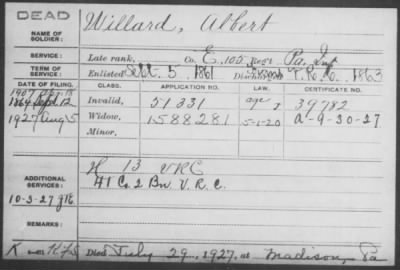 DEAD
NAME OF SOLDIER: Willard, Albert
SERVICE: Late rank, Co. E, 105 Reg't Pa. Inf
TERM OF SERVICE: Enlisted Sept. 5, 1861 Discharged 1863
DATE OF FILING. CLASS. APPLICATION NO. LAW. CERTIFICATE NO.
1907
1864 Sept. 12 Invalid, 51331 39782
1927 Aug 5 Widow, 1588281 5-1-20 a-9-30-27
Minor,
ADDITIONAL SERVICES: H 13 VRC
41 Co. 2 Bn V. R. C.
10-3-27
REMARKS:
Died July 29, 1927, at Madison, Pa